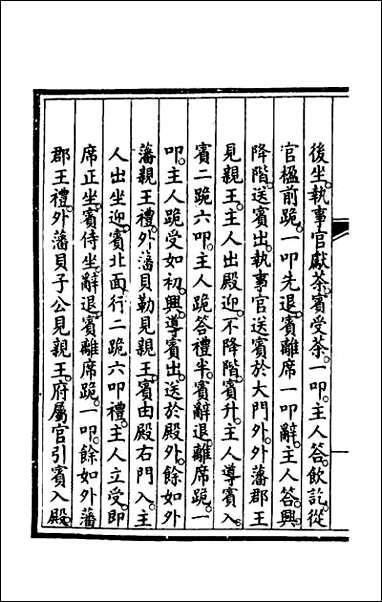 後坐執事官獻茶賓受茶一叩主人答飲訖從
官楹前跪一叩先退賓離席一叩辭主人答興
降階送賓出執事官送賓於大門外外藩郡王
見親王主人出殿迎不降階賓升主人導賓入
賓二跪六叩主人跪答禮半賓辭退離席跪一
叩主人跪受如初興導賓出送於殿外餘如外
藩親王禮外藩貝勒見親王賓由殿右門入主
人出坐迎賓北面行二跪六叩禮主人立受即
席正坐賓侍坐辭退賓離席跪一叩餘如外藩
郡王禮外藩貝子公見親王府屬官引賓入殿